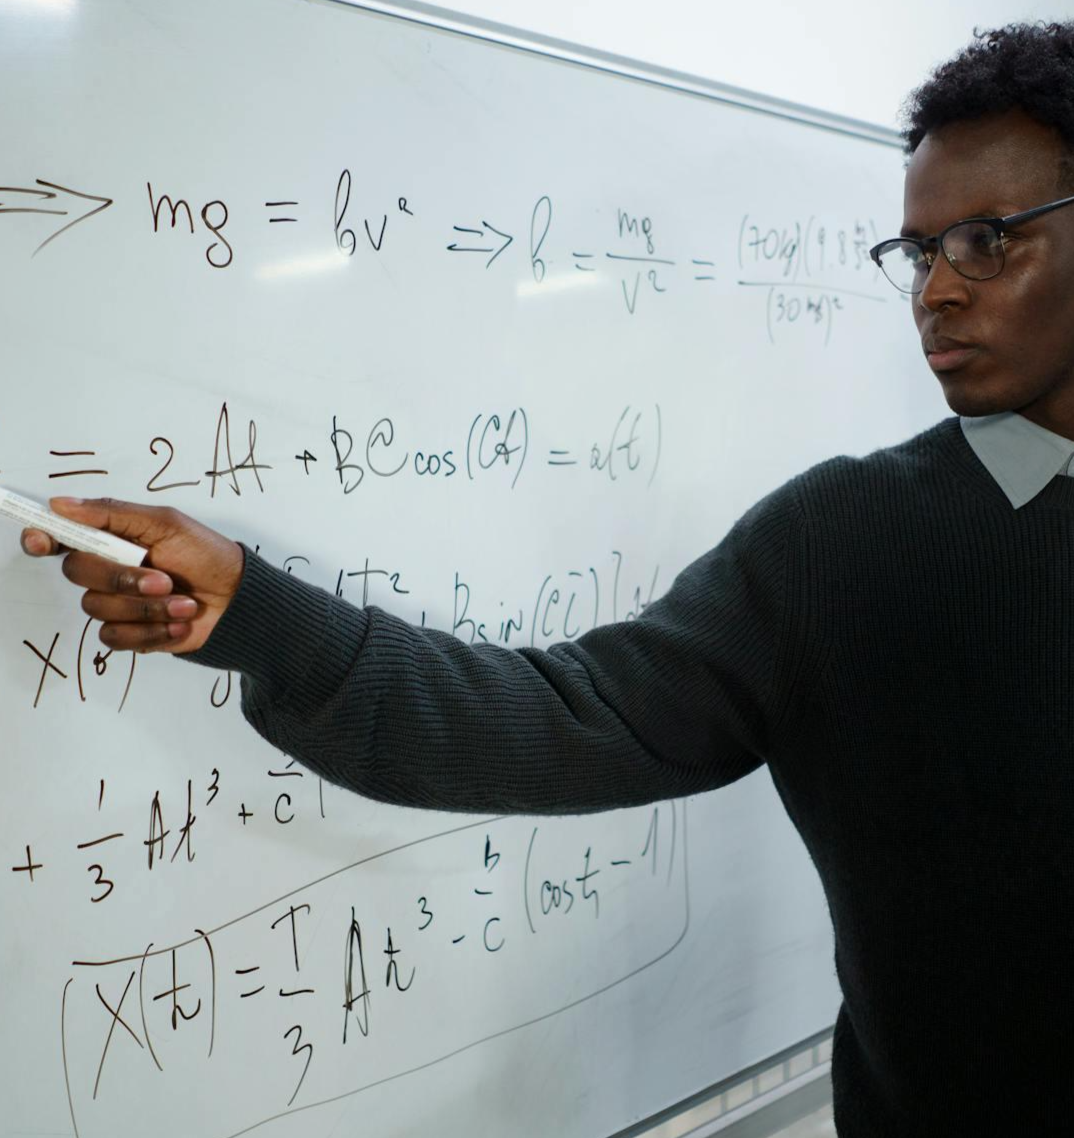 ⇒ mg = bv² ⇒ b = mg/v² = (70 kg)(9.8 m/s²)/(30 m/s)²
= 2At + BC cos(Ct) = a(t)
x(t) At² + B sin(Ct)] dt
+ 1/3 At³ + B/C
x(t) = 1/3 At³ - B/C (cos t - 1)